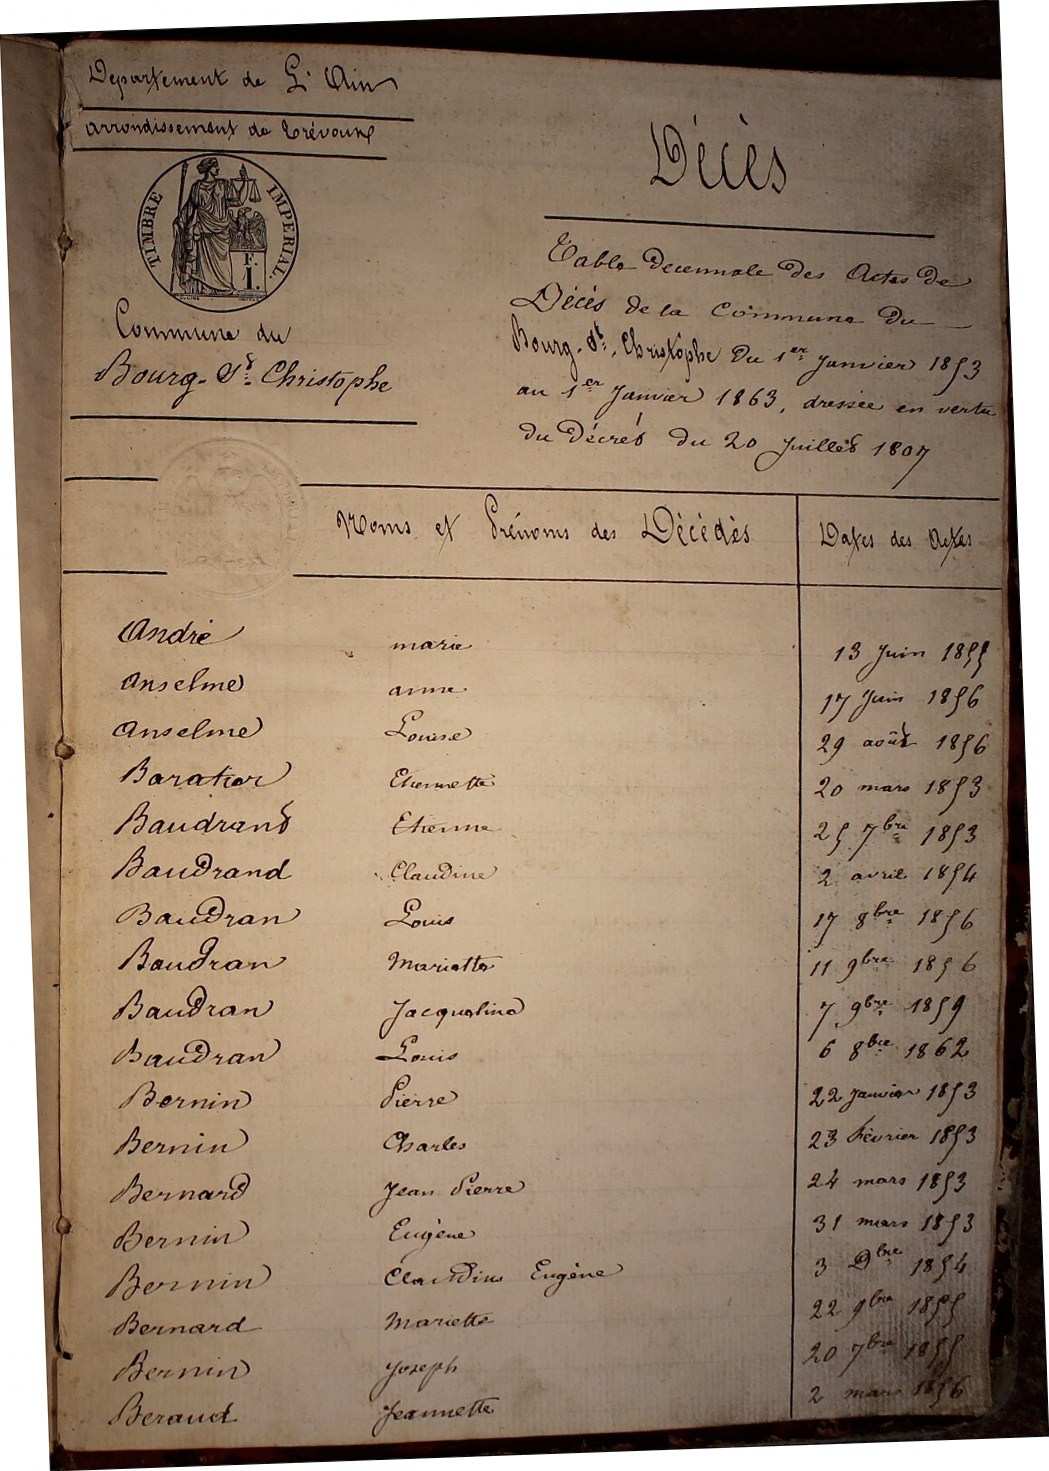 Departement de L'Ain
arrondissement de Trévoux
TIMBRE IMPERIAL.
F.
1.
Commune du
Bourg-St Christophe
Décès
Table décennale des Actes de
Décès de la Commune du
Bourg-St-Christophe du 1er Janvier 1853
au 1er Janvier 1863, dressée en vertu
du Décret du 20 Juillet 1807
Noms et Prénoms des Décédés Dates des Actes
André marie 13 Juin 1855
Anselme anne 17 Juin 1856
Anselme Louise 29 août 1856
Baratier Etiennette 20 mars 1853
Baudrand Etienne 25 7bre 1853
Baudrand Claudine 2 avril 1854
Baudran Louis 17 8bre 1856
Baudran Mariette 11 9bre 1856
Baudran Jacqueline 7 9bre 1859
Baudran Louis 6 8bre 1862
Bernin Pierre 22 Janvier 1853
Bernin Charles 23 Février 1853
Bernard Jean Pierre 24 mars 1853
Bernin Eugène 31 mars 1853
Bernin Claudius Eugène 3 Dbre 1854
Bernard Mariette 22 9bre 1855
Bernin Joseph 20 7bre 1855
Beraud Jeannette 2 mars 1856